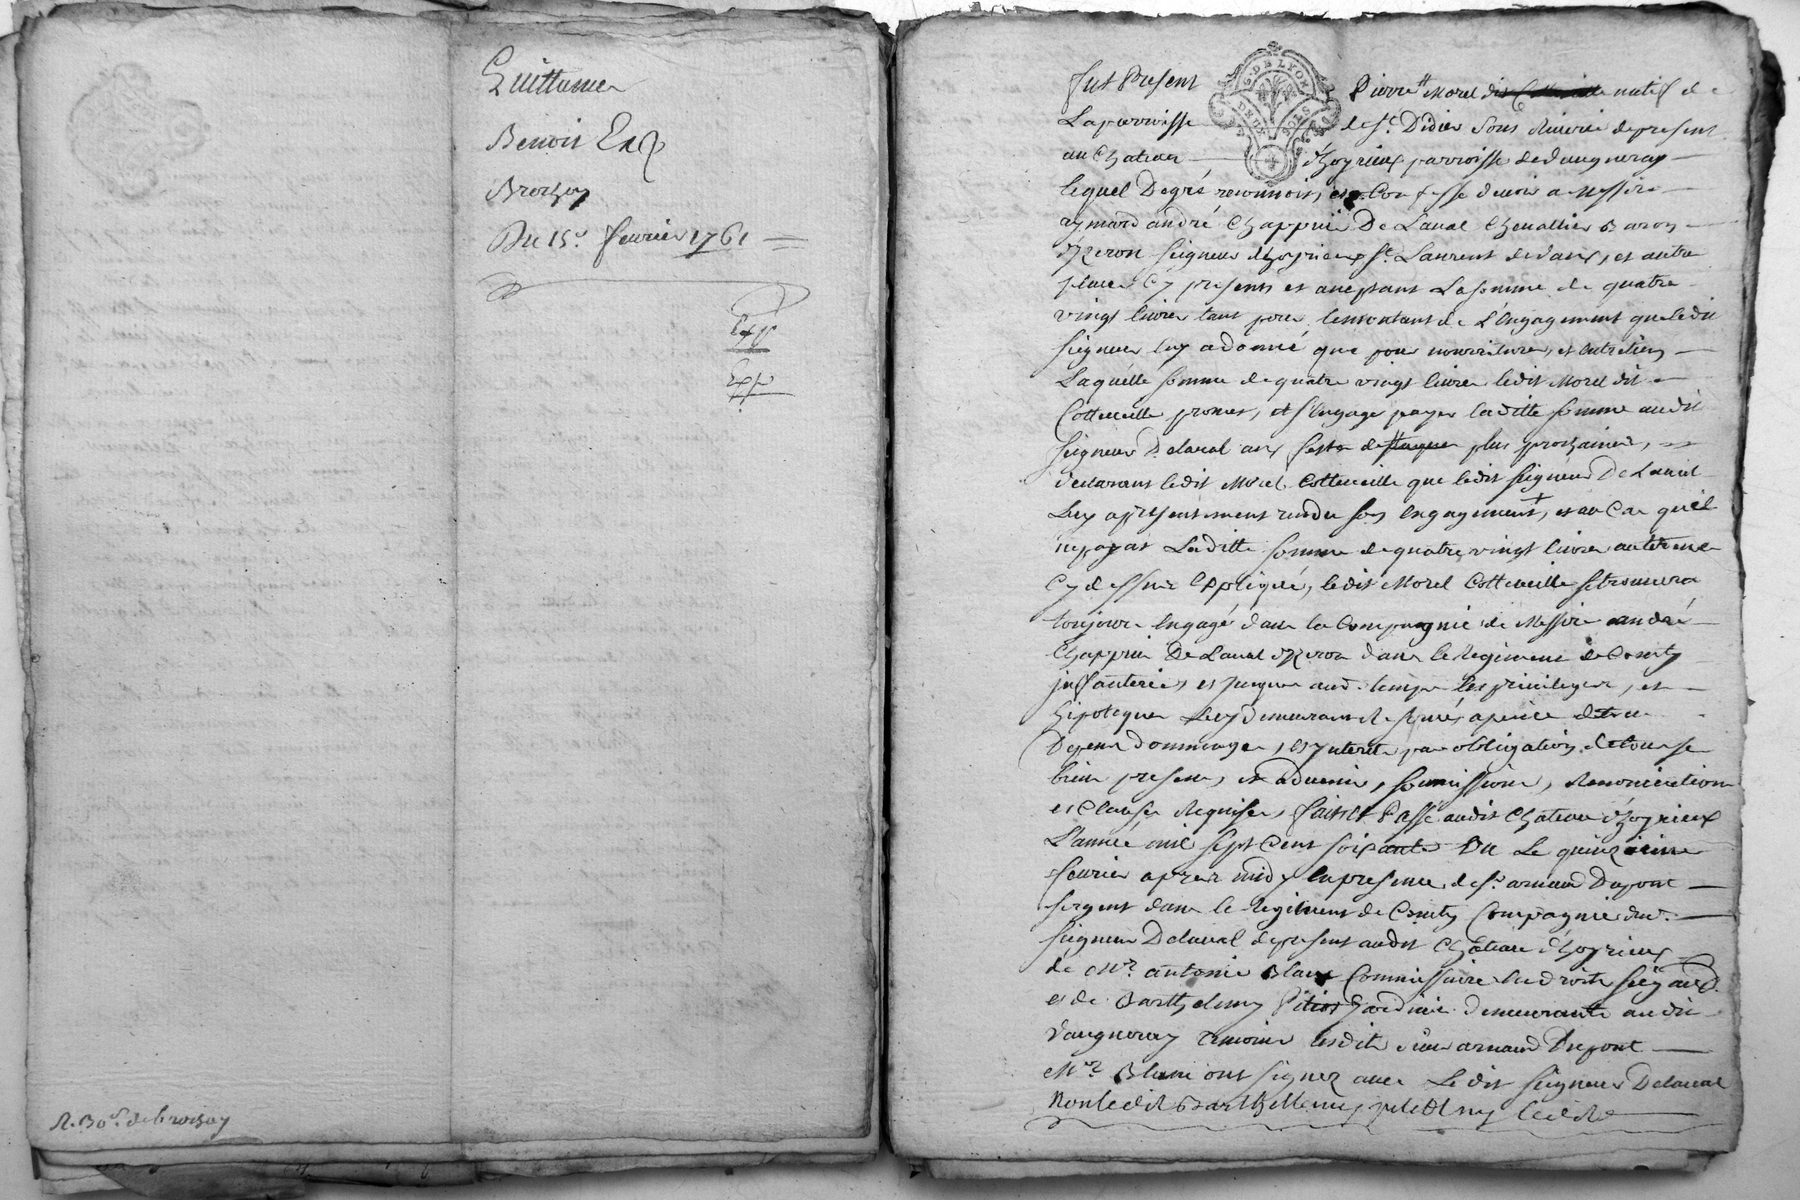 Quittance
Benoit
Brochay
Du 15e. fevrier 1761
R. Bon. de brochay
G. DE LYON
DEUX SOLS
Fut Present Pierre Morel dit natif de
La parroisse de St. Didier Sous Riverie de present
au Chateau d'hoyrieux parroisse de Vaugneray
lequel De gré reconnoit, et Confesse devoir a Messire
aymard andré Chappuis De Laval Chevallier Baron
d'Izeron Seigneur d'hoyrieux St. Laurent de Vaux, et autre
place Cy present et aceptant La somme de quatre
vingt livres tant pour le montant de L'Engagement que ledit
Seigneur luy a donné que pour nourriture, et Entretien
Laquelle somme de quatre vingt livres ledit Morel dit
Cottevieille promet, et s'Engage payer laditte somme audit
Seigneur Delaval aux festes de paques plus prochaines,
declarant ledit Morel Cottevieille que ledit Seigneur De Laval
Luy a presentement rendu son Engagement, et au Cas qu'il
ne payat Laditte somme de quatre vingt livres au terme
Cy dessus Expliqué, ledit Morel Cottevieille se trouvera
toujours Engagé dans la Compagnie de Messire andré
Chappuis De Laval d'Izeron dans le Regiment de Conty
infanterie, et jusques aud. temps les privileges, et
hipoteques Luy demeurant Reservés a peine de tous
Depens dommages, et Interets par obligation de tous ses
biens presents, et advenir, soumissions, Renonciations
et Clauses Requises, fait et Passé audit Chateau d'hoyrieux
L'année mil sept Cent soixante Un Le quinzieme
fevrier apres midy En presence de Sr. arnaud Dupont
sergent dans le Regiment de Conty Compagnie dud.
Seigneur Delaval de present audit Chateau d'hoyrieux
de Mr. antoine Blanc Commissaire en droits seigaux.
et de Barthelemy jardinier demeurants audit
Vaugneray temoins lesdits Sieur arnaud Dupont
Mr. Blanc ont signez avec Ledit Seigneur Delaval
Non ledit Barthellemy